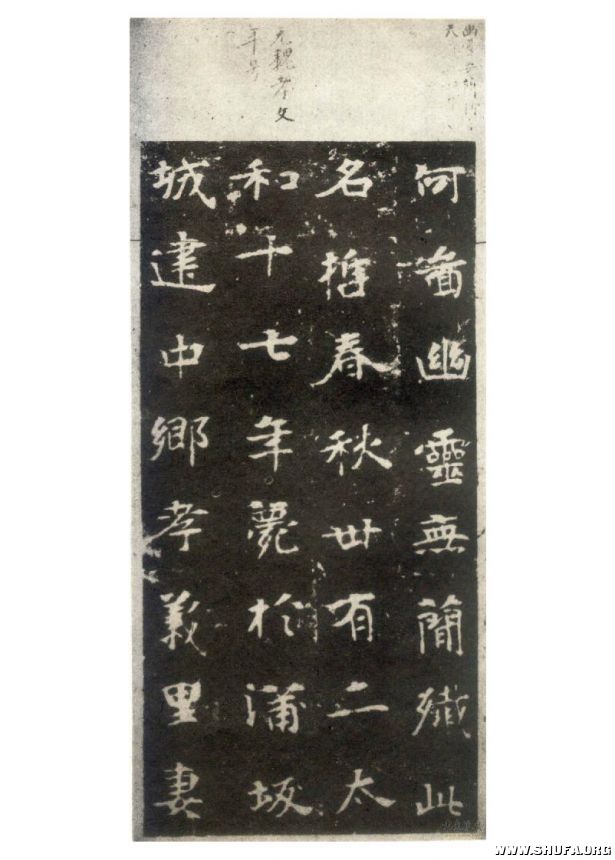 元魏孝文
年号
何啚幽靈無簡殲此
名哲春秋卅有二太
和十七年薨於蒲坂
城建中鄉孝義里妻
WWW.SHUFA.ORG